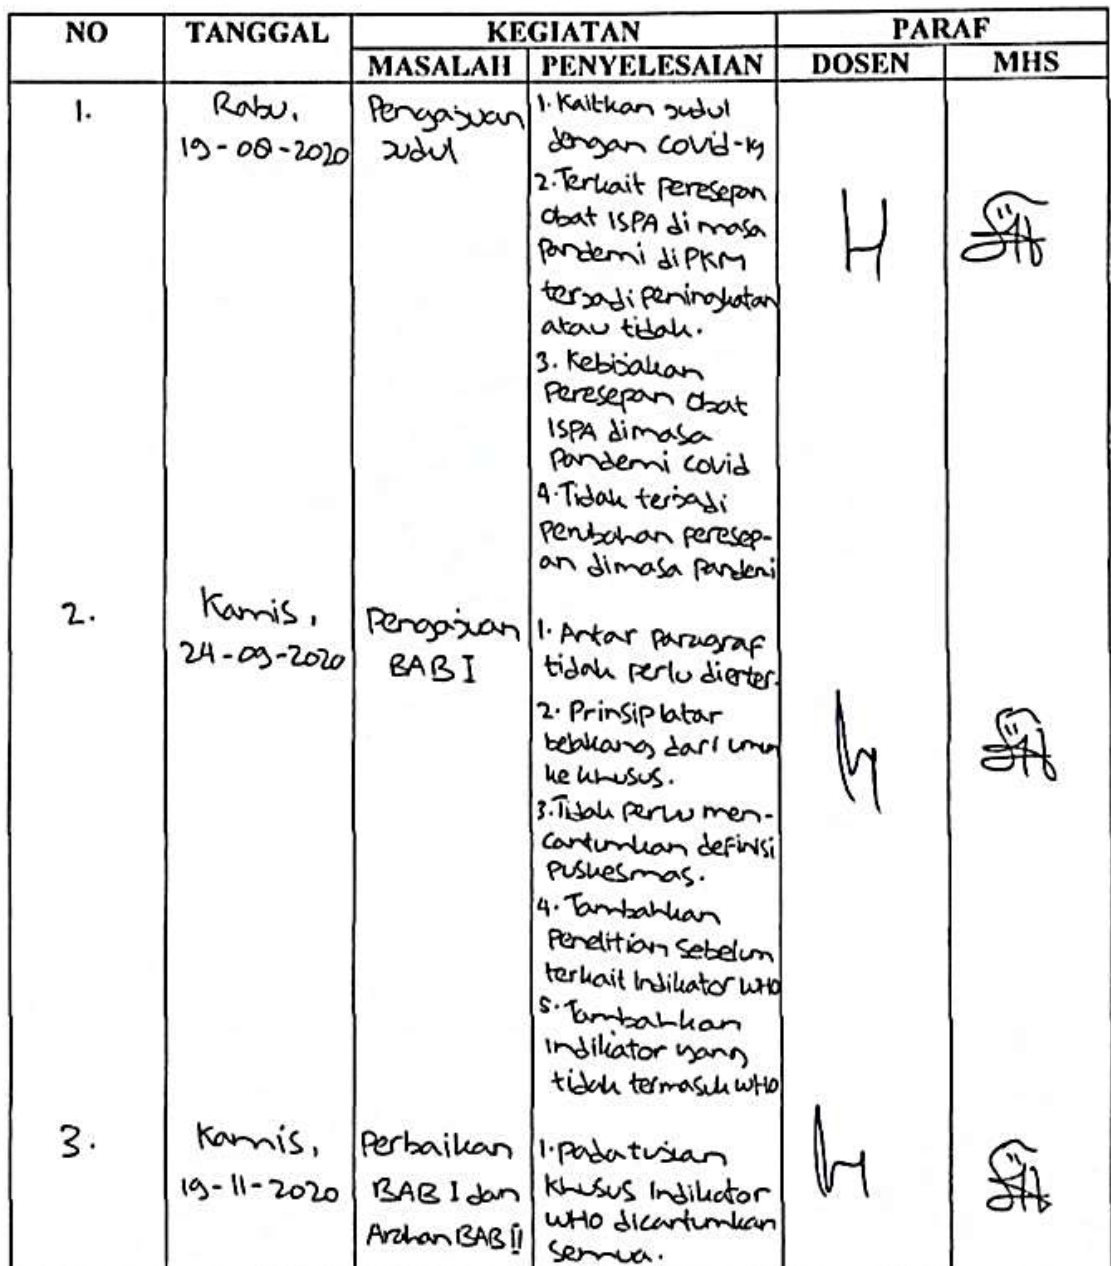 NO TANGGAL KEGIATAN PARAF
MASALAH PENYELESAIAN DOSEN MHS
1.
Rabu,
19-08-2020
Pengajuan
judul
1. Kaitkan judul
dengan covid-19
2. Terkait peresepan
obat ISPA di masa
pandemi di PKM
terjadi peningkatan
atau tidak.
3. Kebijakan
Peresepan obat
ISPA dimasa
Pandemi covid
4. Tidak terjadi
perubahan peresep-
an dimasa pandemi
2.
Kamis,
24-09-2020
Pengajuan
BAB I
1. Antar paragraf
tidak perlu dienter.
2. Prinsip latar
belakang dari umum
ke khusus.
3. Tidak perlu men-
cantumkan definisi
puskesmas.
4. Tambahkan
Penelitian Sebelum
terkait Indikator WHO
5. Tambahkan
indikator yang
tidak termasuk WHO
3.
Kamis,
19-11-2020
Perbaikan
BAB I dan
Arahan BAB II
1. Pada tujuan
khusus Indikator
WHO dicantumkan
semua.